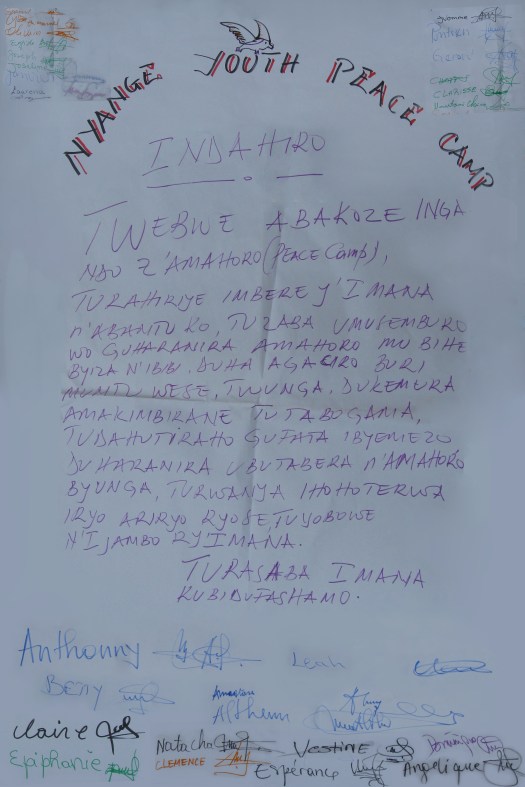 NYANGE YOUTH PEACE CAMP
INDAHIRO
TWEBWE ABAKOZE INGA
NDO Z'AMAHORO (PEACE CAMP),
TURAHIRIYE IMBERE Y'IMANA
N'ABANTU KO, TUZABA UMUSEMBURO
WO GUHARANIRA AMAHORO MU BIHE
BYIZA N'IBIBI. DUHA AGACIRO BURI
MUNTU WESE, TWUNGA, DUKEMURA
AMAKIMBIRANE TUTABOGAMA,
TUDAHUTIRAHO GUFATA IBYEMEZO
DUHARANIRA UBUTABERA N'AMAHORO
BYUNGA, TURWANYA IHOHOTERWA
IRYO ARIRYO RYOSE, TUYOBOWE
N'IJAMBO RY'IMANA.
TURASABA IMANA
KUBIDUFASHAMO.
Anthonny
Leah
BENY
Claire
NATACHA
VESTINE
Epiphanie
CLEMENCE
Espérance
Angelique